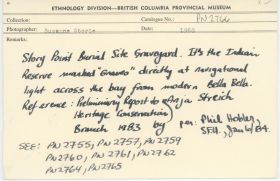 ETHNOLOGY DIVISION—BRITISH COLUMBIA PROVINCIAL MUSEUM
Collection: Catalogue No.: PN2766
Photographer: Suzanne Storie Date: 1968
Remarks:
Story Point Burial Site Graveyard. It's the Indian
Reserve marked "Graves" directly at navigational
light across the bay from modern Bella Bella.
Reference: Preliminary Report to Anja Streich
Heritage Conservation
Branch 1983 by per: Phil Hobler,
SFU, Jan 6/84.
SEE: PN2755, PN2757, PN2759
PN2760, PN2761, PN2762
PN2764, PN2765